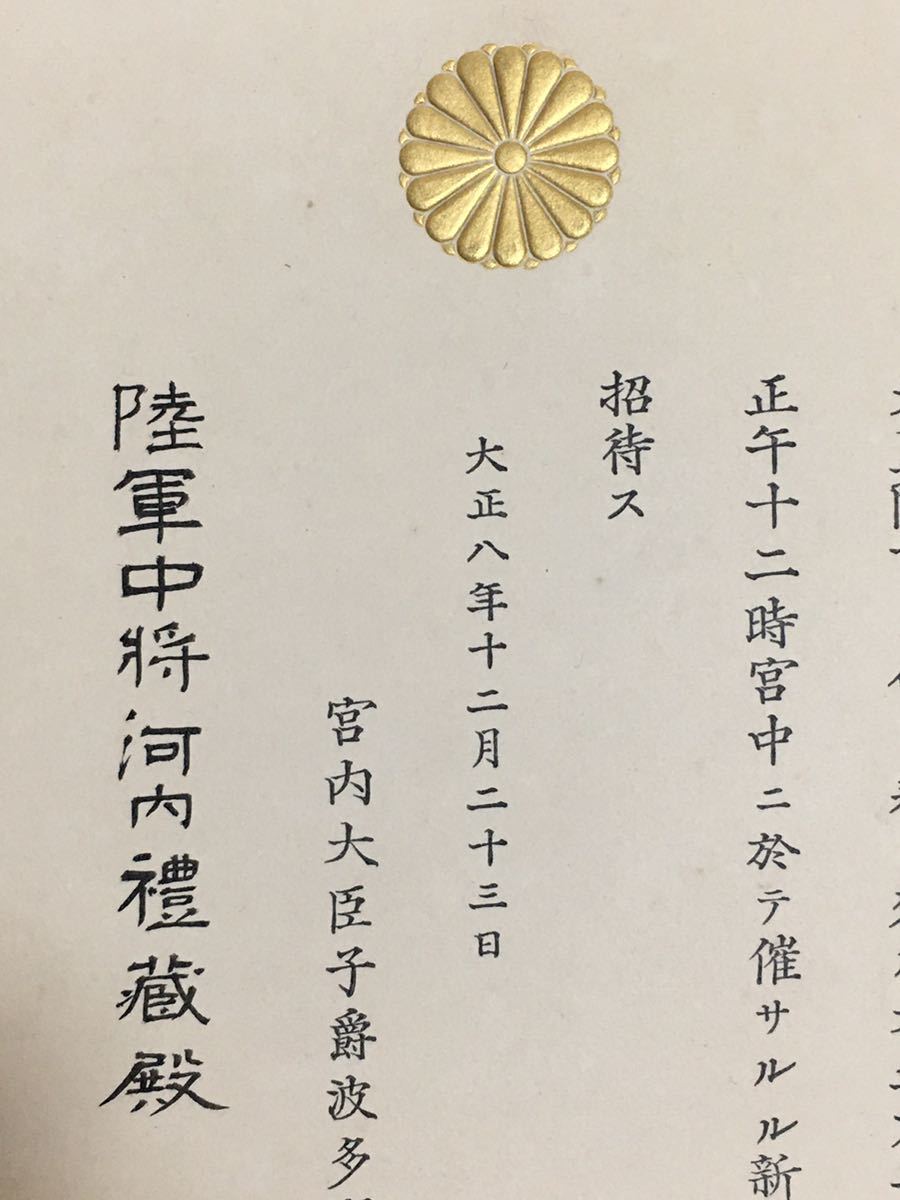 正午十二時宮中ニ於テ催サルル新
招待ス
大正八年十二月二十三日
宮内大臣子爵波多
陸軍中將河内禮藏殿